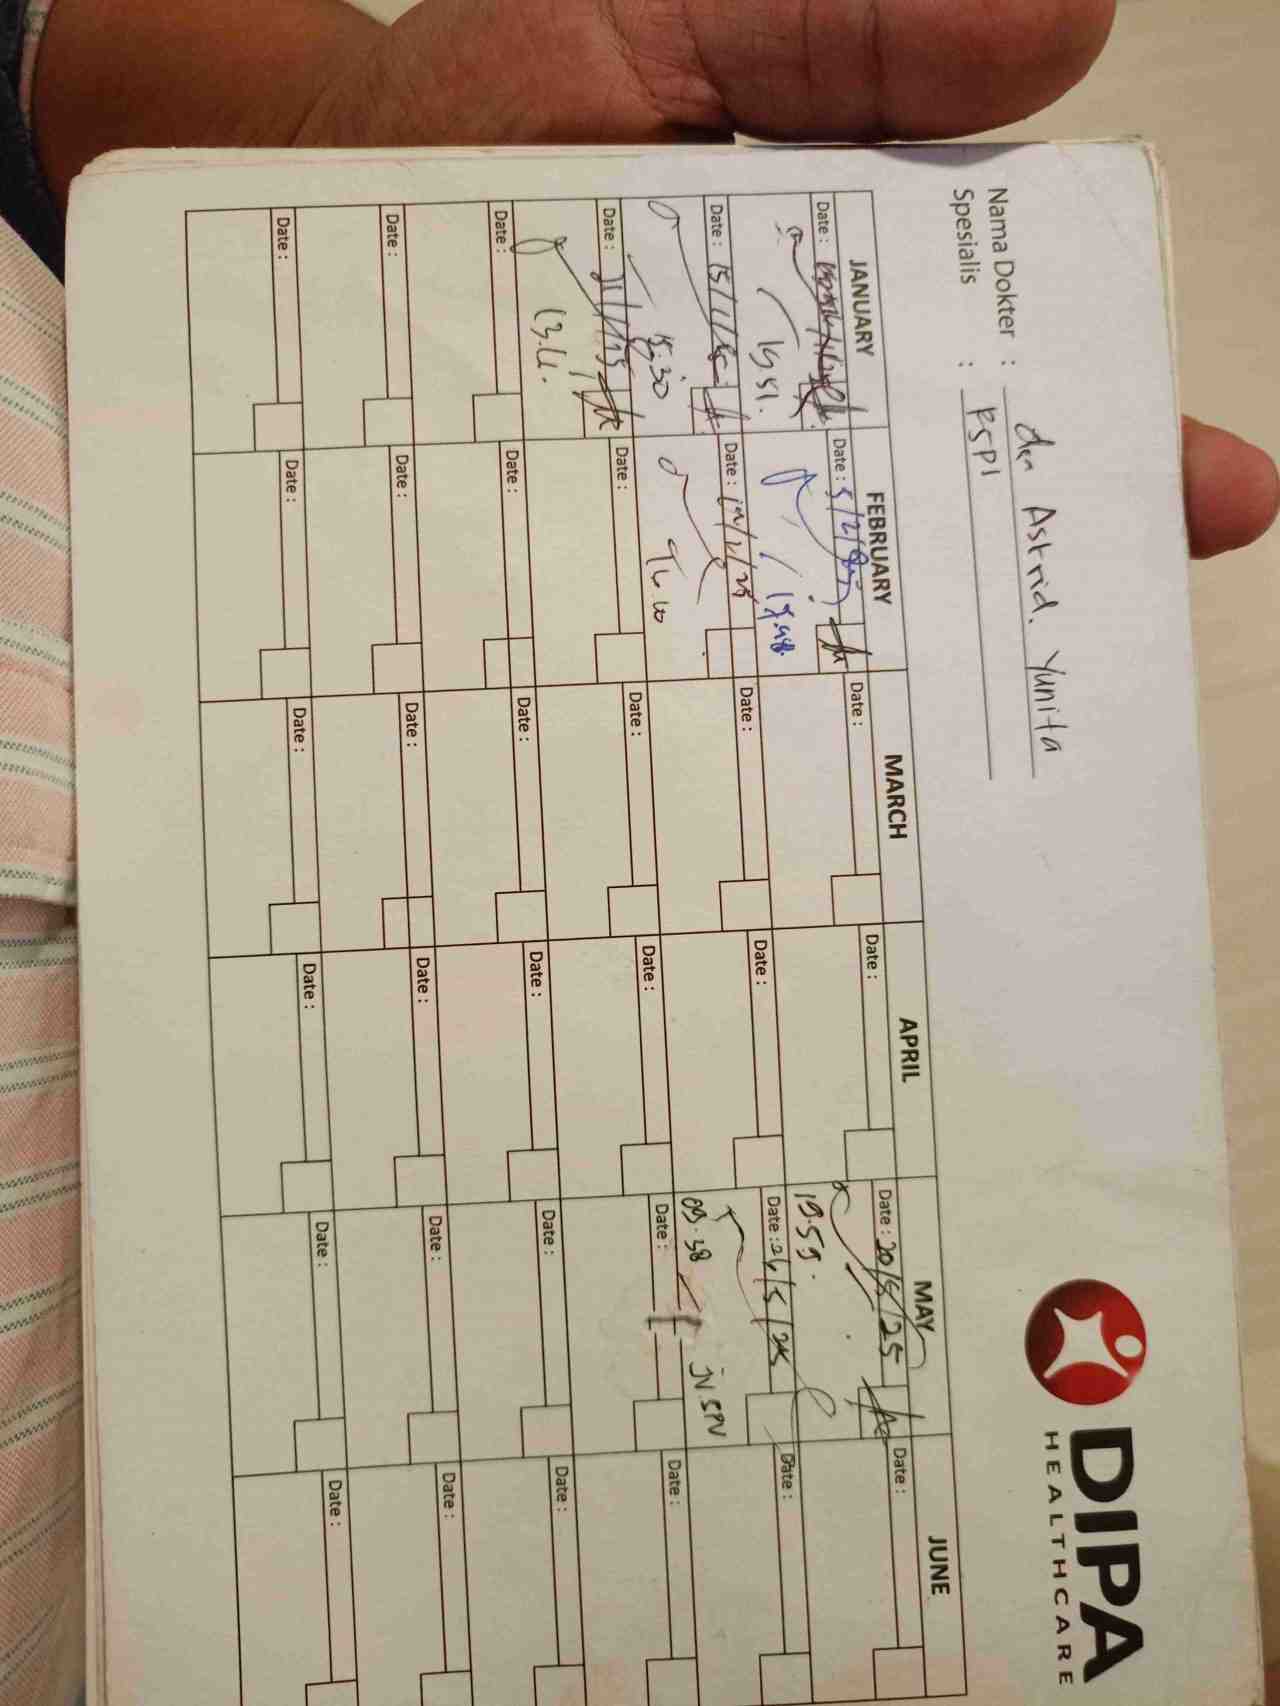 DIPA
HEALTHCARE
Nama Dokter : Astrid. Yunita
Spesialis : RSPI
JANUARY FEBRUARY MARCH APRIL MAY JUNE
Date : Date : 5/2/ Date : Date : Date : 20/5/25 Date :
19.51. 19.48. 19.59.
Date : 15/1/25 Date : Date : Date : Date : 26/5/25 Date :
15.30 09.38 JV.SPV
Date : Date : Date : Date : Date : Date :
Date : Date : Date : Date : Date : Date :
Date : Date : Date : Date : Date : Date :
Date : Date : Date : Date : Date : Date :